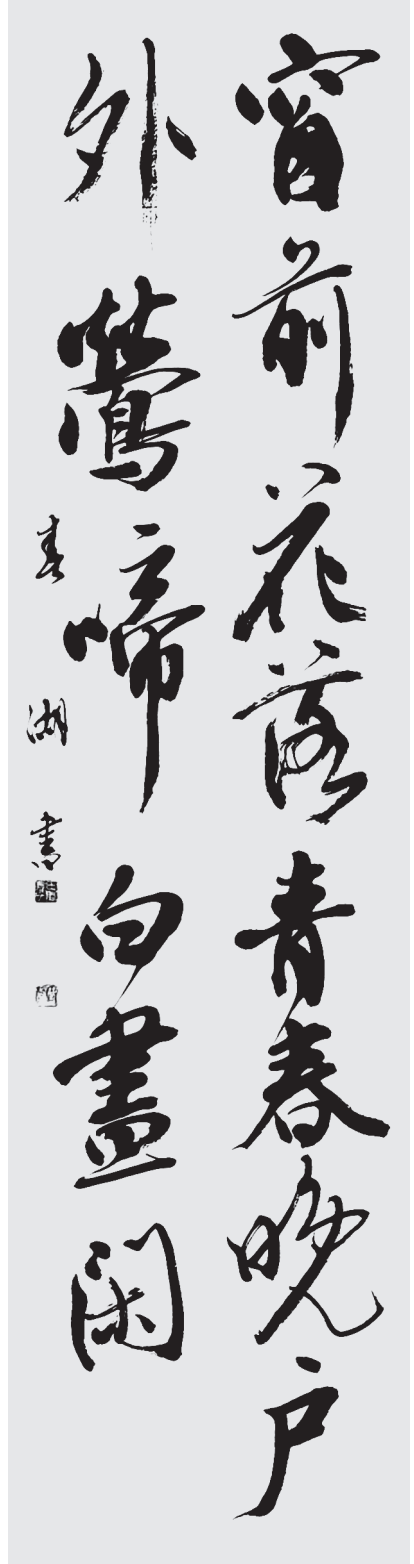 窗前花落青春晚户
外莺啼白晝闲
春湖書